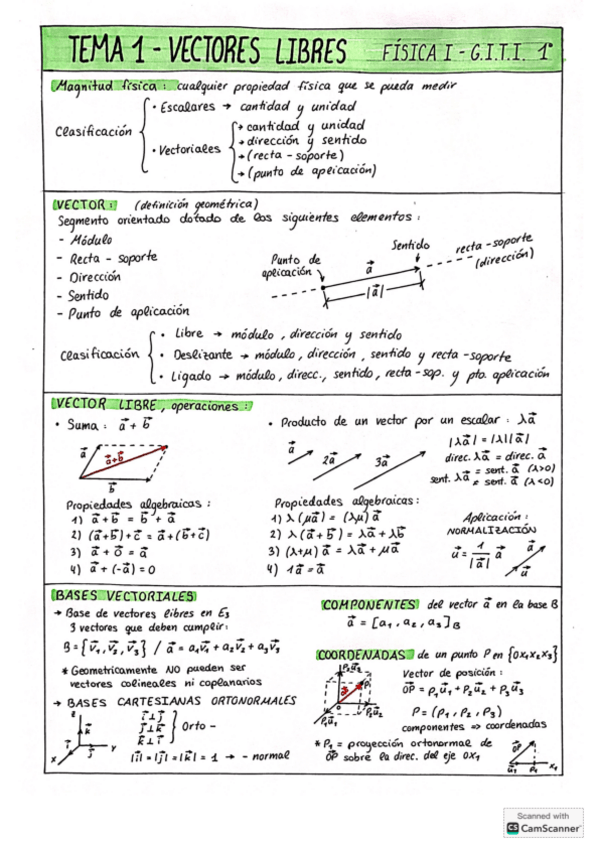 TEMA 1 - VECTORES LIBRES FÍSICA I - G.I.T.I. 1º
Magnitud física: cualquier propiedad física que se pueda medir
Clasificación
• Escalares → cantidad y unidad
• Vectoriales
→ cantidad y unidad
→ dirección y sentido
→ (recta - soporte)
→ (punto de aplicación)
VECTOR: (definición geométrica)
Segmento orientado dotado de los siguientes elementos:
- Módulo
- Recta - soporte
- Dirección
- Sentido
- Punto de aplicación
Punto de aplicación
Sentido
recta-soporte
(dirección)
a⃗
|a⃗|
Clasificación
• Libre → módulo, dirección y sentido
• Deslizante → módulo, dirección, sentido y recta-soporte
• Ligado → módulo, direcc., sentido, recta-sop. y pto. aplicación
VECTOR LIBRE, operaciones:
• Suma: a⃗ + b⃗
a⃗
a⃗+b⃗
b⃗
Propiedades algebraicas:
1) a⃗ + b⃗ = b⃗ + a⃗
2) (a⃗+b⃗)+c⃗ = a⃗+(b⃗+c⃗)
3) a⃗ + 0⃗ = a⃗
4) a⃗ + (-a⃗) = 0
• Producto de un vector por un escalar: λa⃗
a⃗ 2a⃗ 3a⃗
|λa⃗| = |λ||a⃗|
direc. λa⃗ = direc. a⃗
sent. λa⃗ = sent. a⃗ (λ>0)
≠ sent. a⃗ (λ<0)
Propiedades algebraicas:
1) λ(μa⃗) = (λμ)a⃗
2) λ(a⃗+b⃗) = λa⃗ + λb⃗
3) (λ+μ)a⃗ = λa⃗ + μa⃗
4) 1a⃗ = a⃗
Aplicación:
NORMALIZACIÓN
u⃗ = 1/|a⃗| a⃗
a⃗
u⃗
BASES VECTORIALES
→ Base de vectores libres en E₃
3 vectores que deben cumplir:
B = {v⃗₁, v⃗₂, v⃗₃} / a⃗ = a₁v⃗₁ + a₂v⃗₂ + a₃v⃗₃
* Geometricamente NO pueden ser
vectores colineales ni coplanarios
→ BASES CARTESIANAS ORTONORMALES
z
k⃗
i⃗
j⃗
x
y
i⃗⊥j⃗
j⃗⊥k⃗
k⃗⊥i⃗
Orto -
|i⃗|=|j⃗|=|k⃗| = 1 → - normal
COMPONENTES del vector a⃗ en la base B
a⃗ = [a₁, a₂, a₃]B
COORDENADAS de un punto P en {0x₁x₂x₃}
P₃u⃗₃
P
0
P₁u⃗₁
P₂u⃗₂
Vector de posición:
OP⃗ = P₁u⃗₁ + P₂u⃗₂ + P₃u⃗₃
P = (P₁, P₂, P₃)
componentes => coordenadas
* P₁ = proyección ortonormal de
OP⃗ sobre la direc. del eje OX₁
OP⃗
u⃗₁ P₁ x₁
Scanned with
CS CamScanner